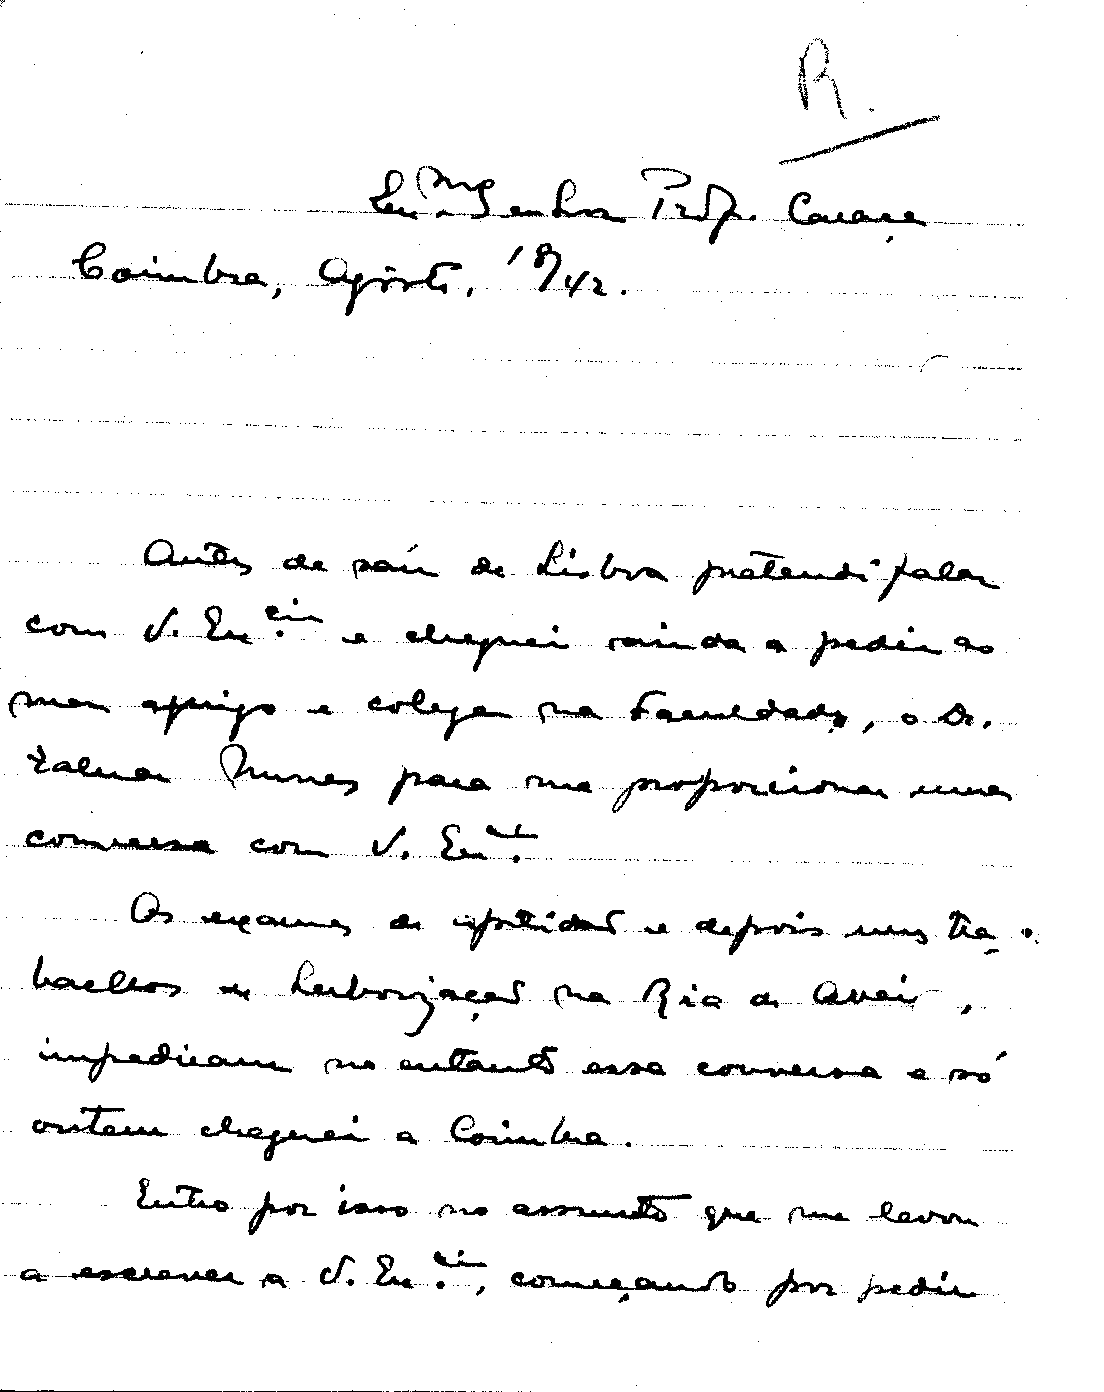 R.
Ex.mo Senhor Prof. Caraça
Coimbra, Agôsto, 18/42.
Antes de saír de Lisboa pretendi falar
com V. Ex.cia e cheguei ainda a pedir ao
meu amigo e colega na Faculdade, o Dr.
Zaluar Nunes para me proporcionar uma
conversa com V. Ex.cia.
Os exames de aptidão e depois uns tra-
balhos de herborização na Ria de Aveiro,
impediram no entanto essa conversa e só
ontem cheguei a Coimbra.
Entro por isso no assunto que me levou
a escrever a V. Ex.cia, começando por pedir